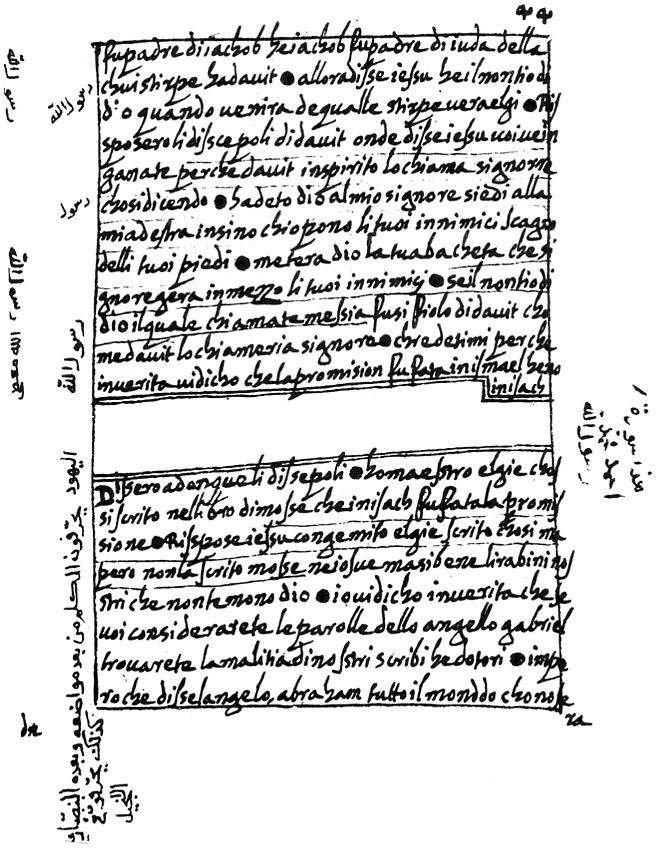 fu padre di iachob he iachob fu padre di iuda della
chui stirpe he dauit ● allora disse iessu he il nontio di
d'o quando uenira de qualle stirpe uera elgi ● Ris
sposero li discepoli di dauit onde disse iessu uoi ue in
ganate perche dauit in spirito lo chiama signorre
chosi dicendo ● ha deto dio al mio signore siedi alla
mia destra insino chio pono li tuoi innimici scagno
delli tuoi piedi ● metera dio la tua bacheta che si
gnoregera in mezzo li tuoi innimicj ● se il nontio di
dio il quale chiamate messia fusi fiolo di dauit cho
me dauit lo chiameria signore ● chredetimi perche
inuerita ui dicho che la promision fu fata in ismael he no
in isach
Dissero adonque li dissepoli ● ho maestro elgie chosj
si scrito nel libro di mosse che in isach fu fata la promis
sione ● Risspose iessu con gemito elgie scrito chosi ma
pero non la scrito mosse ne iosue ma si bene li rabini nos
stri che non temono dio ● io ui dicho inuerita che se
uoi considerarete le parolle dello angello gabriel
trouarete la malitia di nostri scribi he dotori ● impe
roche disse langelo, abraham tutto il monddo chonose
ra
رسول الله
رسول الله
رسول
رسول الله
اليهود يحرفون الكلم من بعد مواضعه وبعده النصارى
كذلك يحرفون
الانجيل
رسول الله